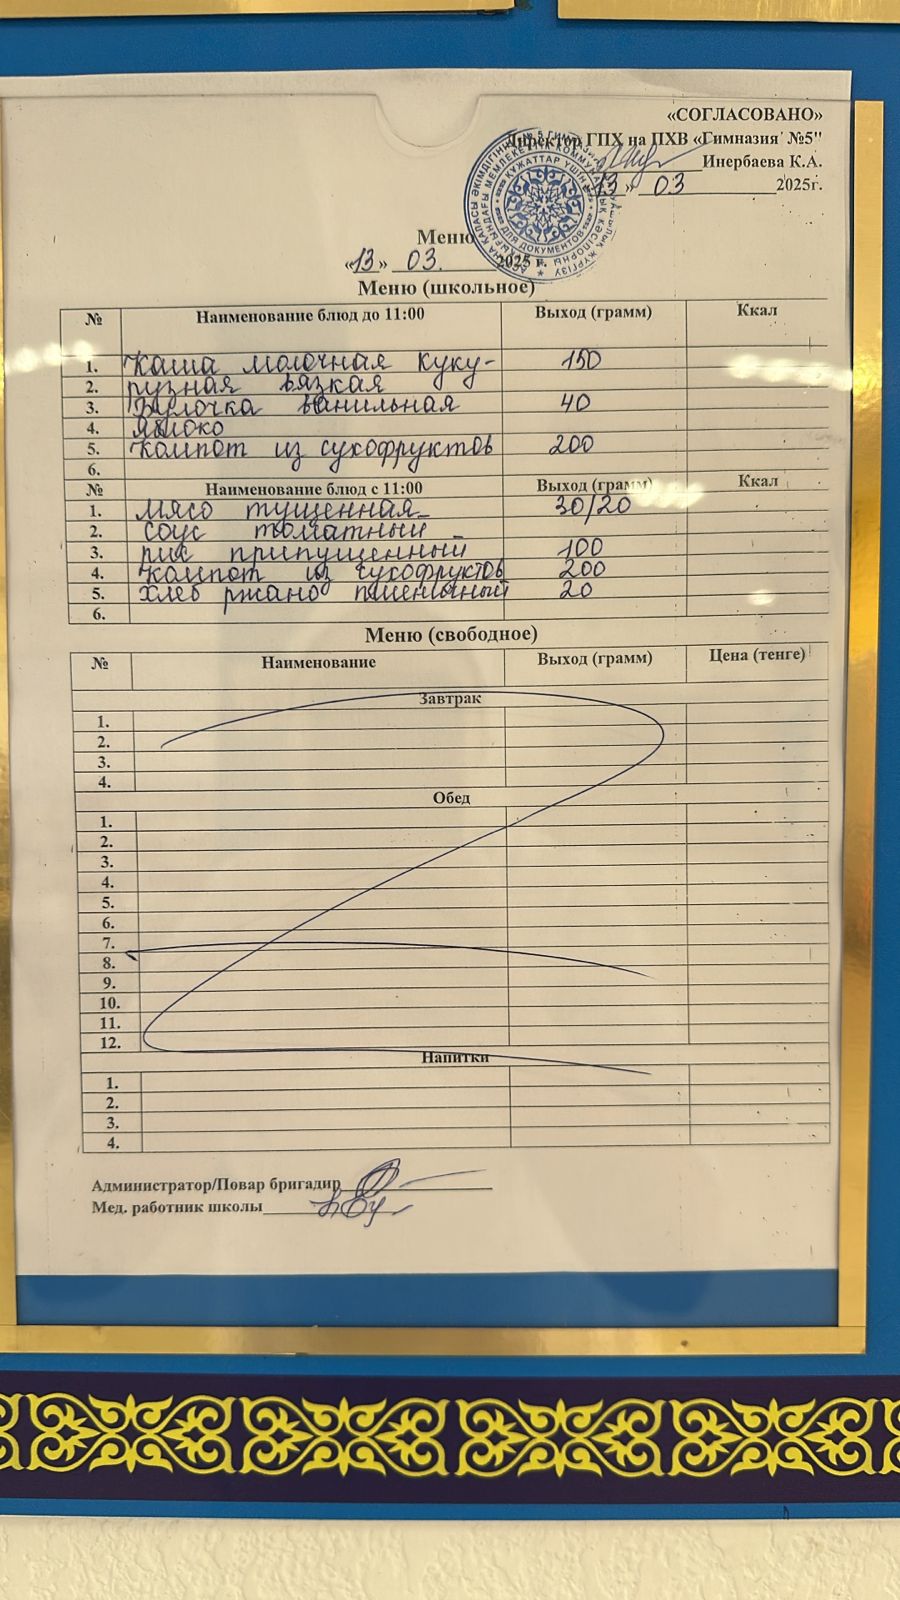 «СОГЛАСОВАНО»
Директор ГПХ на ПХВ «Гимназия №5"
Инербаева К.А.
13» 03 2025г.
Меню
«13» 03. 2025 г.
Меню (школьное)
№ Наименование блюд до 11:00 Выход (грамм) Ккал
1. Каша молочная куку- 150
2. рузная вязкая
3. Булочка ванильная 40
4. яблоко
5. компот из сухофруктов 200
6.
№ Наименование блюд с 11:00 Выход (грамм) Ккал
1. мясо тущенная 30/20
2. соус томатный
3. рис припущенный 100
4. компот из сухофруктов 200
5. хлеб ржано пшеничный 20
6.
Меню (свободное)
№ Наименование Выход (грамм) Цена (тенге)
Завтрак
1.
2.
3.
4.
Обед
1.
2.
3.
4.
5.
6.
7.
8.
9.
10.
11.
12.
Напитки
1.
2.
3.
4.
Администратор/Повар бригадир
Мед. работник школы